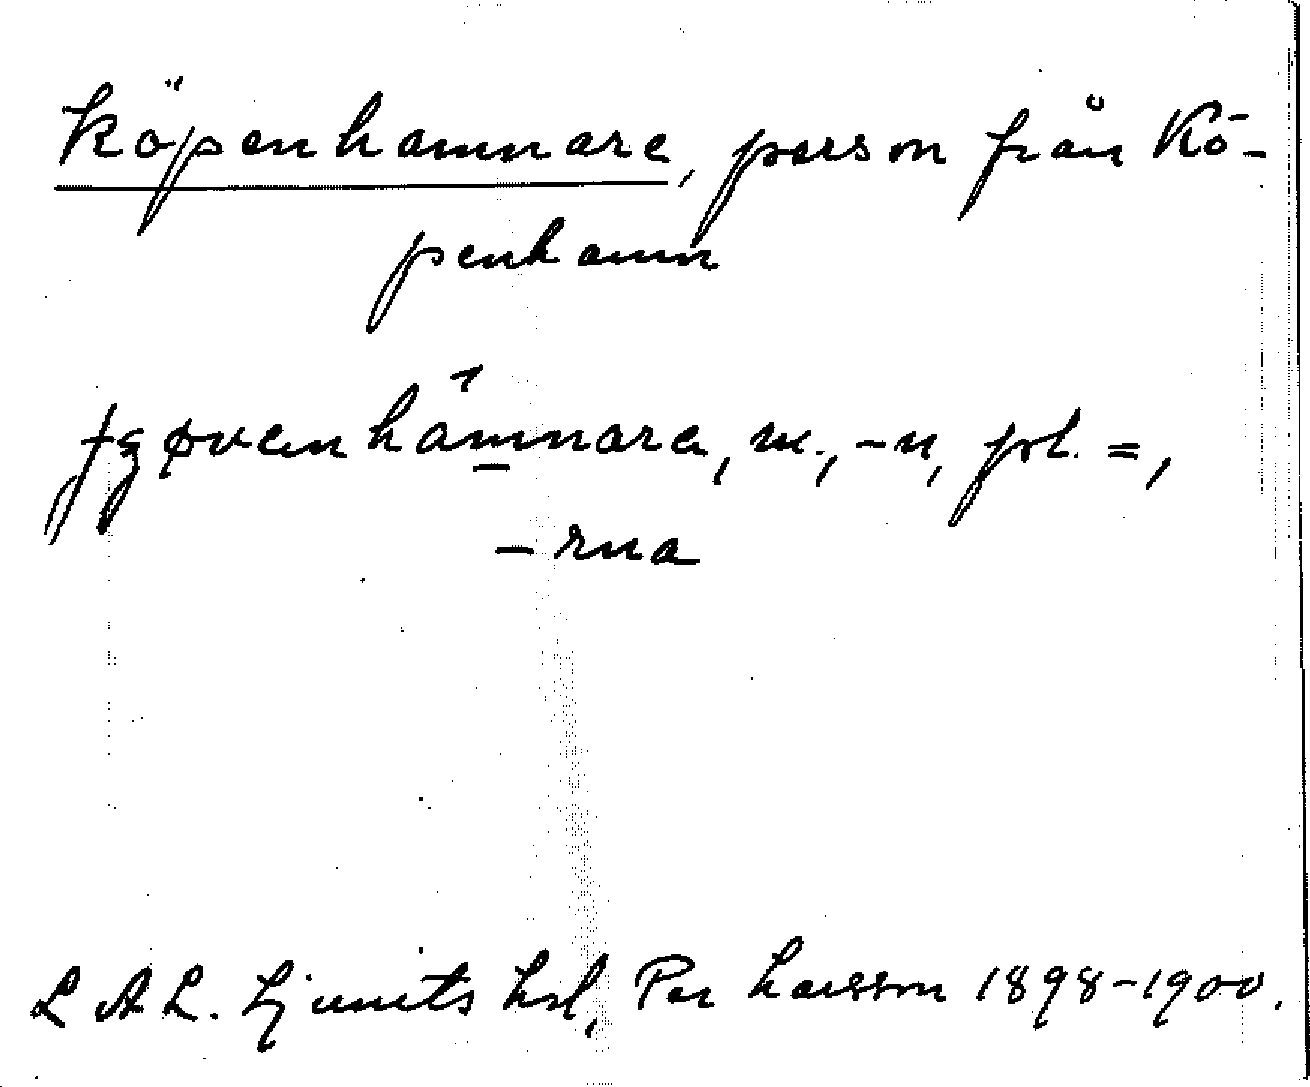 Köpenhamnare, person från Kö-
penhamn
m., -n, pl. =,
-rna
L A L. Ljunits hd, Per Larsson 1898-1900.